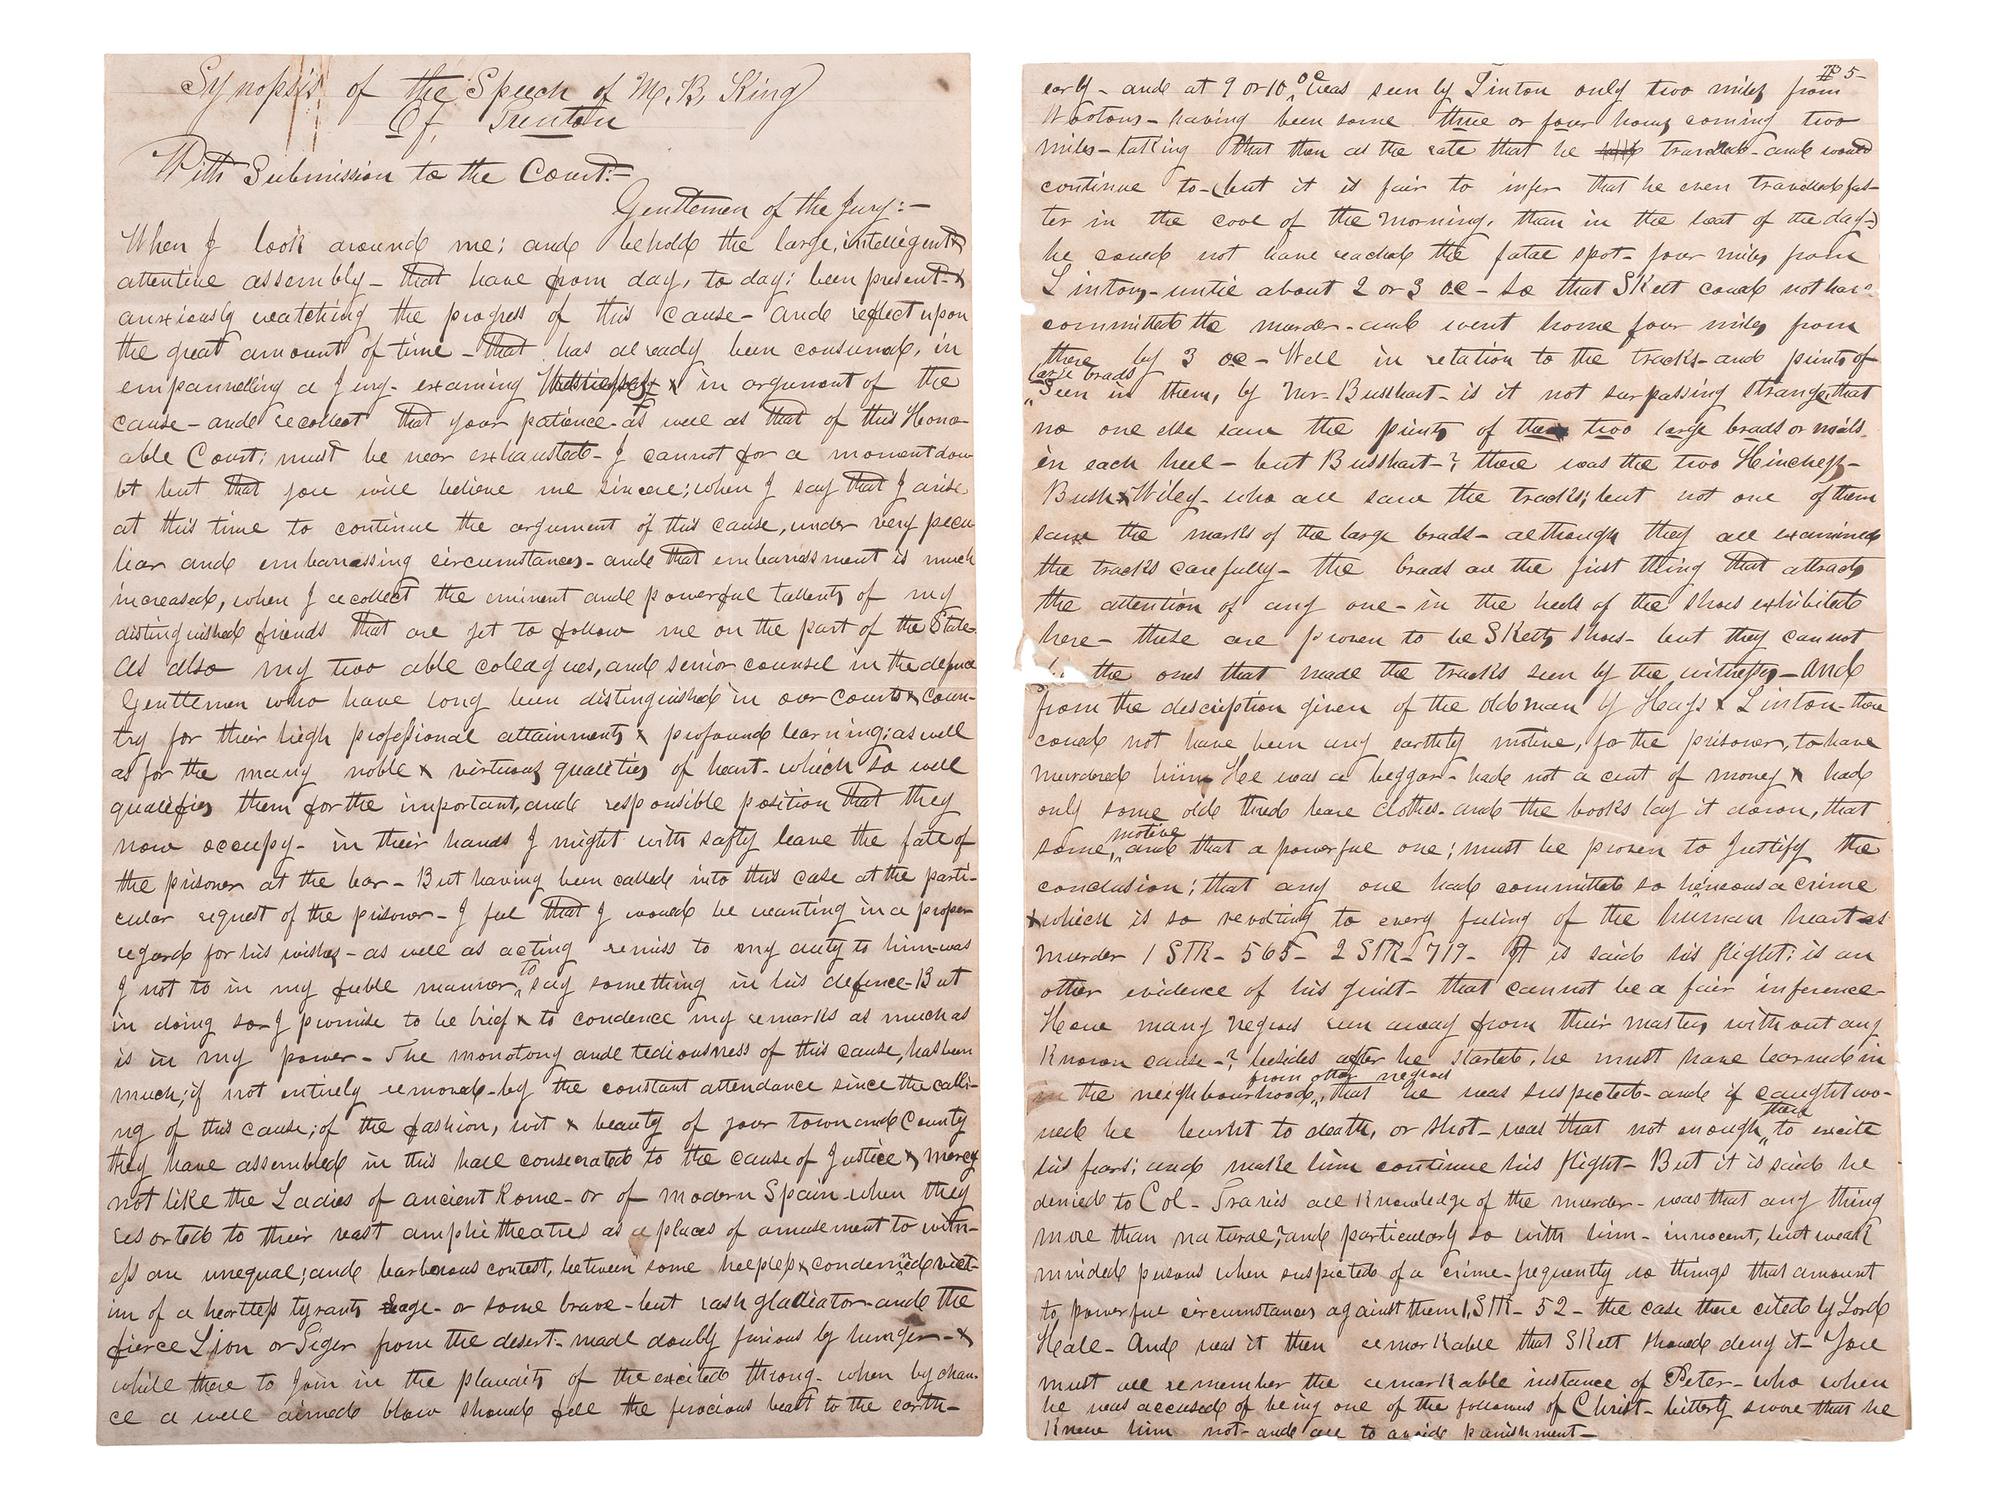 Synopsis of the Speech of M. B. King
Of Trenton
With Submission to the Court:-
Gentlemen of the Jury:-
When I look around me; and behold the large, intelligent &
attentive assembly- that have from day, to day; been present- &
anxiously watching the progress of this cause- and reflect upon
the great amount of time- that has already been consumed, in
empannelling a Jury- examing Witnesses & in argument of the
cause- and recollect that your patience- as well as that of this Hono-
able Court; must be near exhausted- I cannot for a moment dou
bt but that you will believe me sincere; when I say that I arise
at this time to continue the argument of this cause, under very pecu
liar and embarrassing circumstances- and that embarrassment is much
increased, when I recollect the eminent and powerful tallents of my
distinguished friends that are yet to follow me on the part of the State-
As also my two able coleagues, and senior counsel in the defence
Gentlemen who have long been distinguished in our courts & coun-
try for their high professional attainments & profound learning; as well
as for the many noble & virtuous qualities of heart- which so well
qualifies them for the important, and responsible position that they
now occupy- in their hands I might with safty leave the fate of
the prisoner at the bar- But having been called into this case at the parti-
cular request of the prisoner- I feel that I would be wanting in a proper
regard for his wishes- as well as acting remiss to my duty to him- was
I not to in my feeble manner, to say something in his defence- But
in doing so- I promise to be brief & to condence my remarks as much as
is in my power- The monotony and tediousness of this cause, has been
much; if not entirely removed- by the constant attendance since the calli-
ng of this cause; of the fashion, wit & beauty of your town and County
they have assembled in this hall consecrated to the cause of Justice & mercy
not like the Ladies of ancient Rome- or of modern Spain- when they
resorted to their vast amphitheatres as places of amusement to witn-
ess an unequal; and barberous contest, between some helpless & condemned vict-
im of a heartless tyrants rage- or some brave- but rash gladiator- and the
fierce Lion or Tiger from the desert- made doubly furious by hunger- &
while there to Join in the plaudits of the excited throng- when by chan-
ce a well aimed blow should fell the ferocious beast to the earth-
5-
early- and at 9 or 10 oc was seen by Linton only two miles from
Wootons- having been some three or four hours coming two
miles- taking that then as the rate that he traveled- and would
continue to- (but it is fair to infer that he even traveled fas-
ter in the cool of the morning, than in the heat of the day-)
he could not have reached the fatal spot- four miles from
Lintons- until about 2 or 3 oc- So that Skett could not have
committed the murder- and went home four miles from
there by 3 oc- Well in relation to the tracks- and prints of
large brads
seen in them, by Mr. Busshart- is it not surpassing strange, that
no one else saw the prints of two large brads or nails
in each heel- but Busshart-? there was the two Hinchess-
Bush & Wiley- who all saw the tracks; but not one of them
saw the marks of the large brads- although they all examined
the tracks carefully- the brads are the first thing that attracts
the attention of any one- in the heels of the shoes exhibited
here- these are proven to be Sketts shoes- but they cannot
the ones that made the tracks seen by the witnesses- and
from the description given of the old man by Hays & Linton- there
could not have been any earthly motive, for the prisoner, to have
murdered him. Hee was a beggar- had not a cent of money & had
only some old thred bare clothes- and the books lay it down, that
motive
some, and that a powerful one; must be proven to Justify the
conclusion; that any one had committed so heineous a crime
& which is so revolting to every feeling of the human heart- as
murder 1 STR- 565- 2 STR- 719- It is said his flight; is an
other evidence of his guilt- that cannot be a fair inference-
Have many negroes run away from their masters without any
Known cause-? besides after he started, he must have learned in
from other negroes
in the neighbourhood, that he was suspected- and if caught wo-
then
uld be burnt to death, or shot- was that not enough, to excite
his fears; and make him continue his flight- But it is said he
denied to Col- Travis all Knowledge of the murder- was that any thing
more than natural; and particularly so with him- innocent, but weak
minded persons when suspected of a crime- frequently do things that amount
to powerful circumstances against them 1, STR- 52- the case there cited by Lord
Hale- And was it then remarkable that Skett should deny it- You
must all remember the remarkable instance of Peter- who when
he was accused of being one of the followers of Christ- bitterly swore that he
Knew him not- and all to avoid punishment-